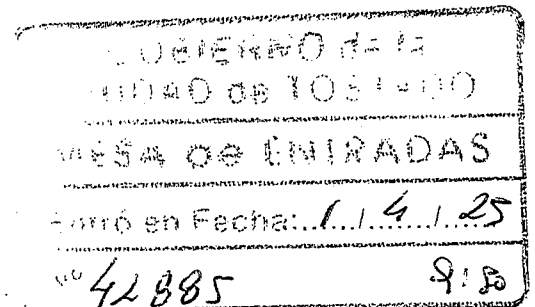 GOBIERNO de la
CIUDAD de TOSTADO
MESA de ENTRADAS
Entró en Fecha: 1 / 4 / 25
Nº 42885